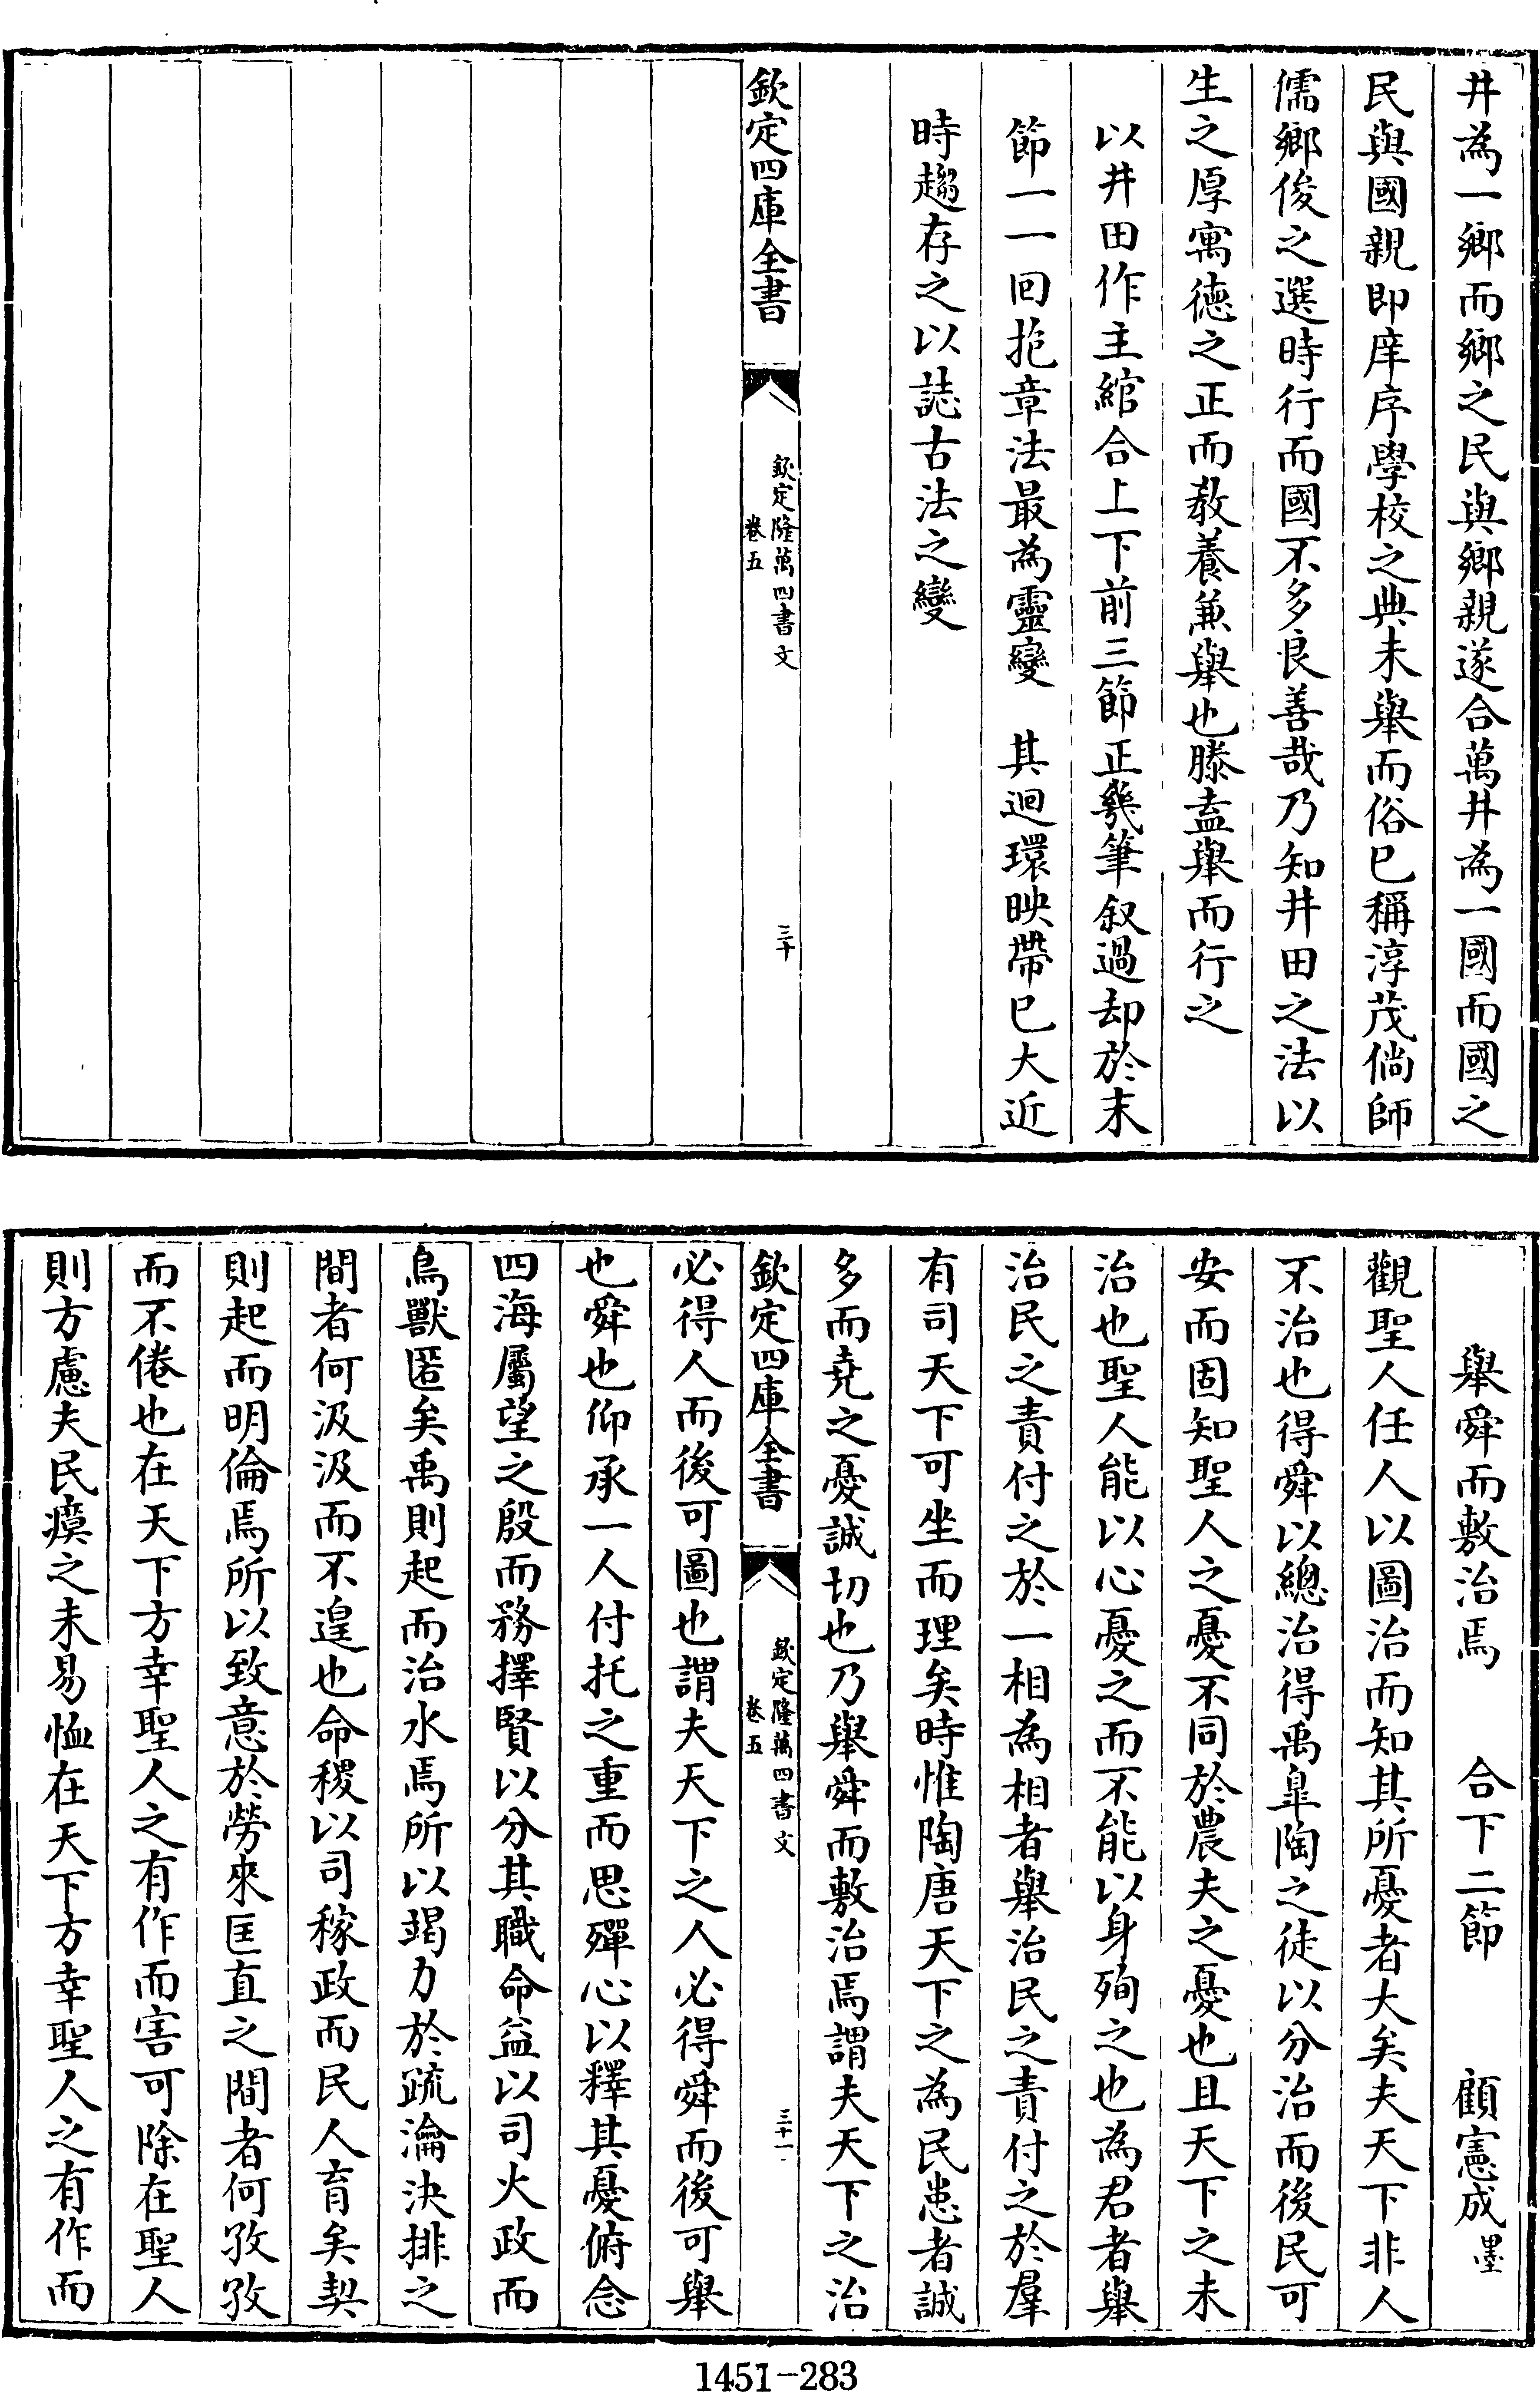 井為一鄉而鄉之民與鄉親遂合萬井為一國而國之
民與國親即庠序學校之典未舉而俗已稱淳茂倘師
儒鄉俊之選時行而國不多良善哉乃知井田之法以
生之厚寓德之正而教養兼舉也滕盍舉而行之
以井田作主綰合上下前三節正幾筆叙過却於末
節一一回抱章法最為靈變　其迴環映帶已大近
時趨存之以誌古法之變
欽定四庫全書
欽定隆萬四書文
卷五
三十
舉舜而敷治焉　合下二節　顧憲成墨
觀聖人任人以圖治而知其所憂者大矣夫天下非人
不治也得舜以總治得禹皐陶之徒以分治而後民可
安而固知聖人之憂不同於農夫之憂也且天下之未
治也聖人能以心憂之而不能以身殉之也為君者舉
治民之責付之於一相為相者舉治民之責付之於羣
有司天下可坐而理矣時惟陶唐天下之為民患者誠
多而堯之憂誠切也乃舉舜而敷治焉謂夫天下之治
欽定四庫全書
欽定隆萬四書文
卷五
三十一
必得人而後可圖也謂夫天下之人必得舜而後可舉
也舜也仰承一人付托之重而思殫心以釋其憂俯念
四海屬望之殷而務擇賢以分其職命益以司火政而
鳥獸匿矣禹則起而治水焉所以竭力於疏瀹決排之
間者何汲汲而不遑也命稷以司稼政而民人育矣契
則起而明倫焉所以致意於勞來匡直之間者何孜孜
而不倦也在天下方幸聖人之有作而害可除在聖人
則方慮夫民瘼之未易恤在天下方幸聖人之有作而
1451-283